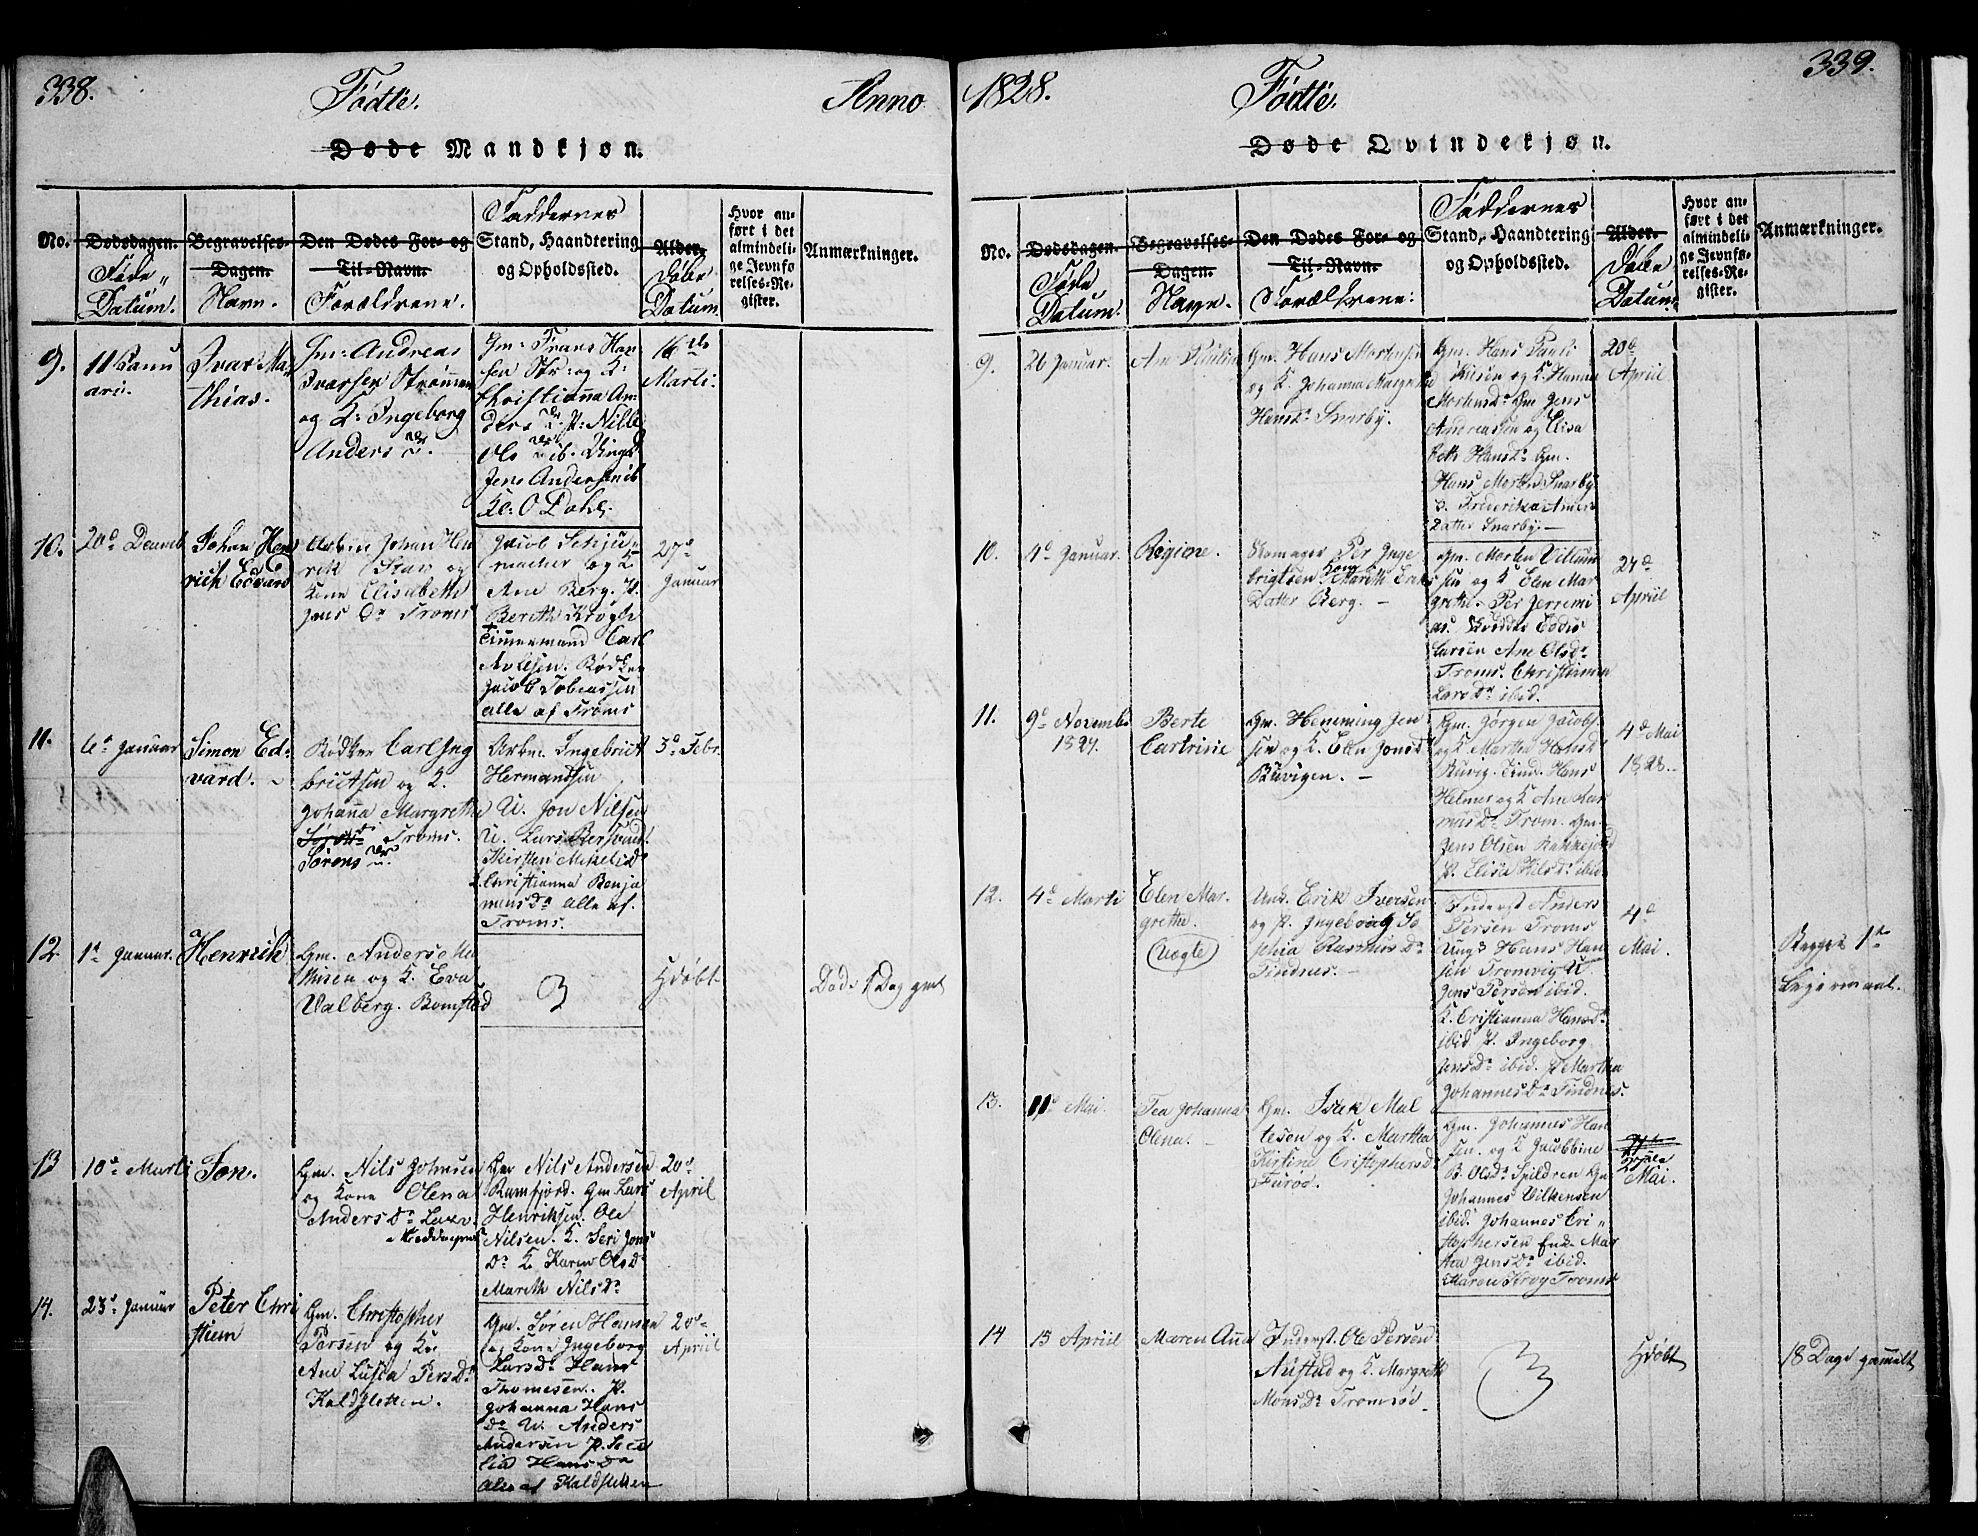 338.
Födte.
Anno
Døde Mandkjøn.
No.
Dødsdagen.
Føde„
Datum.
Begravelses-
Dagen.
Navn.
Den Dødes For- og
Til-Navn.
Forældrene.
Faddernes
Stand, Haandtering
og Opholdssted.
Alder.
Døbe
Datum
Hvor an-
ført i det
almindeli-
ge Jevnfø
relses-Re-
gister.
Anmærkninger.
9.
11 Janu
ari.
Ivar Ma„
thias.
Gm: Andreas
Ivarsen Strømmen
og K: Ingeborg
Anders dr.
Gm: Frans Han
sen Str: og K:
Christianna An-
ders dr. P: Nille
Ols dr ib.
Jens Andersen ib
O Dahl.
16de
Marti.
10.
20d Decemb
Johan Hen
rich Edvard
Johan Hen
rik og
Kone Elisabeth
Jens Dr Troms
Jacob Schju
macher og K
Ane Berg. P.
Berith Krogh
Timmermand Carl
Bødker
Jacob Tobiassen
alle af Troms
27d
Januar
11.
6d Januar
Simon Ed-
vard.
Bødker Carl Ing
brictsen og K.
Johanna Margrethe
Troms.
Sørens dr
Arbm. Ingebrict
Hermandsen
U. Jon Nilsen
U. Lars
Kirsten
Christianna Benja
mins Dr alle af
Troms.
3d Febr.
12.
1d Januar.
Henrich
Gm. Anders
og K. Eva
Valberg.
Hdøbt
Døde 1 Dag gml
13
10d Marti
Jon.
Gm. Nils Johnsen
og Kone Olena
Anders Dr
Gm Nils Andersen
Ramfjord. Gm Lars
Henriksen. Ole
Nilsen. K. Seri Jons
Dr K Karen Ols Dr
Marith Nils Dr
20d
April
14.
23d Januar
Peter Chri
stiern
Gm. Christopher
Persen og Ko
Ane Lusia Pers Dr
Kaldsletten.
Gm. Søren Hansen
og Kone Ingeborg
Lars Dr Hans
Thomesen. P.
Johanna Hans
Dr U. Anders
Andersen P.
Hans Dr
Ale af Kaldsletten
20d
April
1828.
Fødte.
339.
Døde Qvindekjøn.
No.
Dødsdagen.
Føde
Datum.
Begravelses-
Dagen.
Navn.
Den Dødes For- og
Til-Navn.
Forældrene:
Faddernes
Stand, Haandtering
og Opholdssted.
Alder.
Døbe
Datum.
Hvor an-
ført i det
almindeli-
ge Jevnfø-
relses-Re-
gister.
Anmærkninger.
9.
26 Januar.
Ane Paulin
Gm. Hans Mortensen
og K. Johanna Margrethe
Hans Dr Snarby.
Gm. Hans Pauli
Nilsen og K. Hanna
Mortens Dr Gm Jens
Andreassen og Elisa
beth Hans Dr Gm.
Hans Morten Snarby
Frederika
Datter Snarby.
20d
April
10.
4d Januar.
Regine.
Per Inge
brigtsen Kone Marith Eriks
Datter Berg.
Gm. Morten Villum
sen og K Elen Mar
grethe. Per Jerremi
as.
Larsen Ane Ols Dr
Troms. Christianna
Lars Dr ibid.
27d
April
11.
9d Novembr
1827.
Berte
Cartrine
Gm. Hemming Jen
sen og K. Elen Jons Dr
Gm. Jørgen Jacobs.
og K Martha Hans Dr
Hans
Helmer og K Ane Ras
mus Dr Trom. Gm.
Jens Olsen
P. Elisa Nils Dr ibid
4d Mai
1828.
12.
4d Marti
Elen Mar-
grethe.
(Uægte)
Unk. Erik Iversen
og P. Ingeborg So
phia Rasmus Dr
Tindnes.
Inderst Anders
Persen Troms
Ungk Hans Han
sen Tromvig U
Jens Persen ibid.
K. Cristianna Hans Dr
ibid P. Ingeborg
Jens Dr ibid. P Martha
Johannes Dr Tindnes.
4d
Mai.
Begges 1te
Leiermaal.
13.
11d Mai.
Tea Johanna
Olena.
Gm. Isak Mal
tesen og K. Martha
Kirstine Cristophers Dr
Gm. Johannes Han
sen og K Jacobbine
B. Ols Dr Spildren Gm
Johannes Vilhensen
ibid. Johannes Cri„
stophersen Enk. Mar
tha Jens Dr ibid.
Maren Krog Troms
Mai.
14
15 April
Maren Anna
Inderst. Ole Persen
og K. Margrethe
Mons Dr Tromsød
Hdøbt
18 Dage gammelt